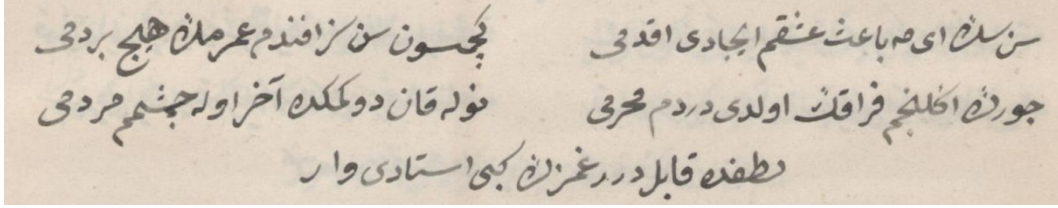 سن سڭ ای مه باعث عشقم ایجادی اقدمی    کچمسون سن سز افندم عمرمڭ هیچ بر دمی
جورڭ اکلنجم فراقڭ اولدی دردم محرمی    نوله قان دوکمکده آخر اوله چشمم مردمی
لطفه قابلدر غمزه‌ڭ کبی استادی وار